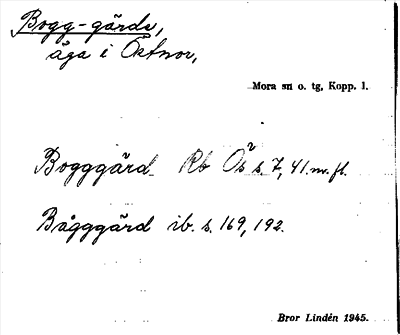 Bogg-gärde,
äga i Östnor,
Mora sn o. tg, Kopp. l.
Bogggärd Rb Ös² s. 7, 41 m. fl.
Bågggärd ib. s. 169, 192.
Bror Lindén 1945.